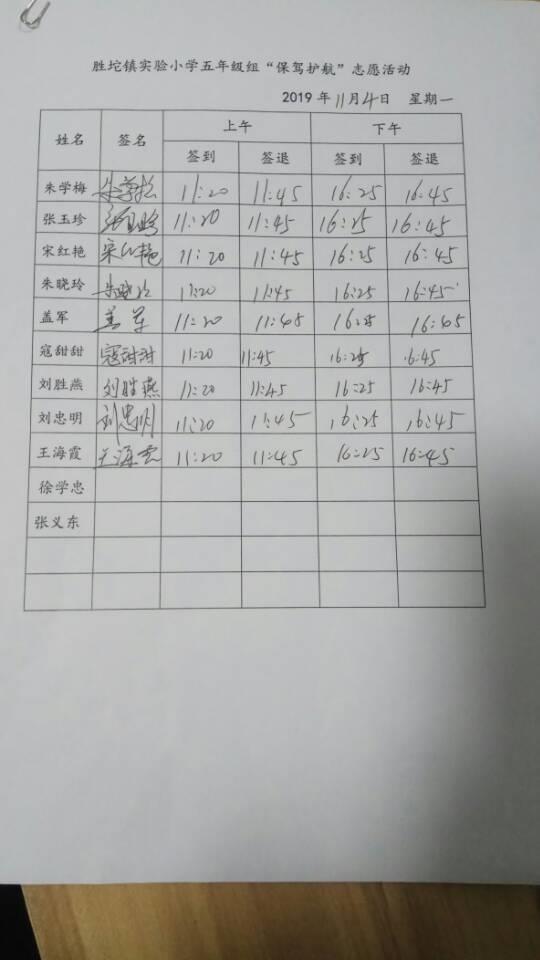 胜坨镇实验小学五年级组“保驾护航”志愿活动
2019年11月4日 星期一
姓名 签名 上午 下午
签到 签退 签到 签退
朱学梅 11:20 11:45 16:25 16:45
张玉珍 张玉珍 11:20 11:45 16:25 16:45
宋红艳 宋红艳 11:20 11:45 16:25 16:45
朱晓玲 朱晓玲 11:20 11:45 16:25 16:45
盖军 盖军 11:20 11:45 16:25 16:45
寇甜甜 寇甜甜 11:20 11:45 16:25 16:45
刘胜燕 刘胜燕 11:20 11:45 16:25 16:45
刘忠明 刘忠明 11:20 11:45 16:25 16:45
王海霞 王海霞 11:20 11:45 16:25 16:45
徐学忠
张义东